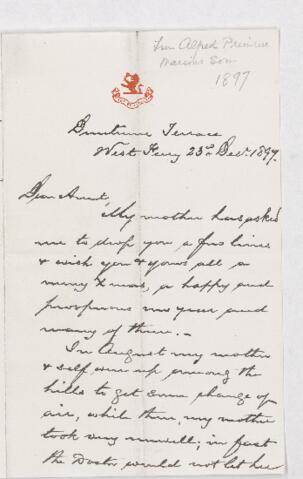 from Alfred Primrose
Marions Son
1897
Terrace
West Ferry 23rd Decr. 1897.
Dear Aunt,
My mother has asked
me to drop you a few lines
& wish you & yours all a
merry Xmas, a happy and
prosperous new year and
many of them. —
In August my mother
& self were up among the
hills to get some change of
air, while there, my mother
took very unwell; in fact
the Doctor would not let her